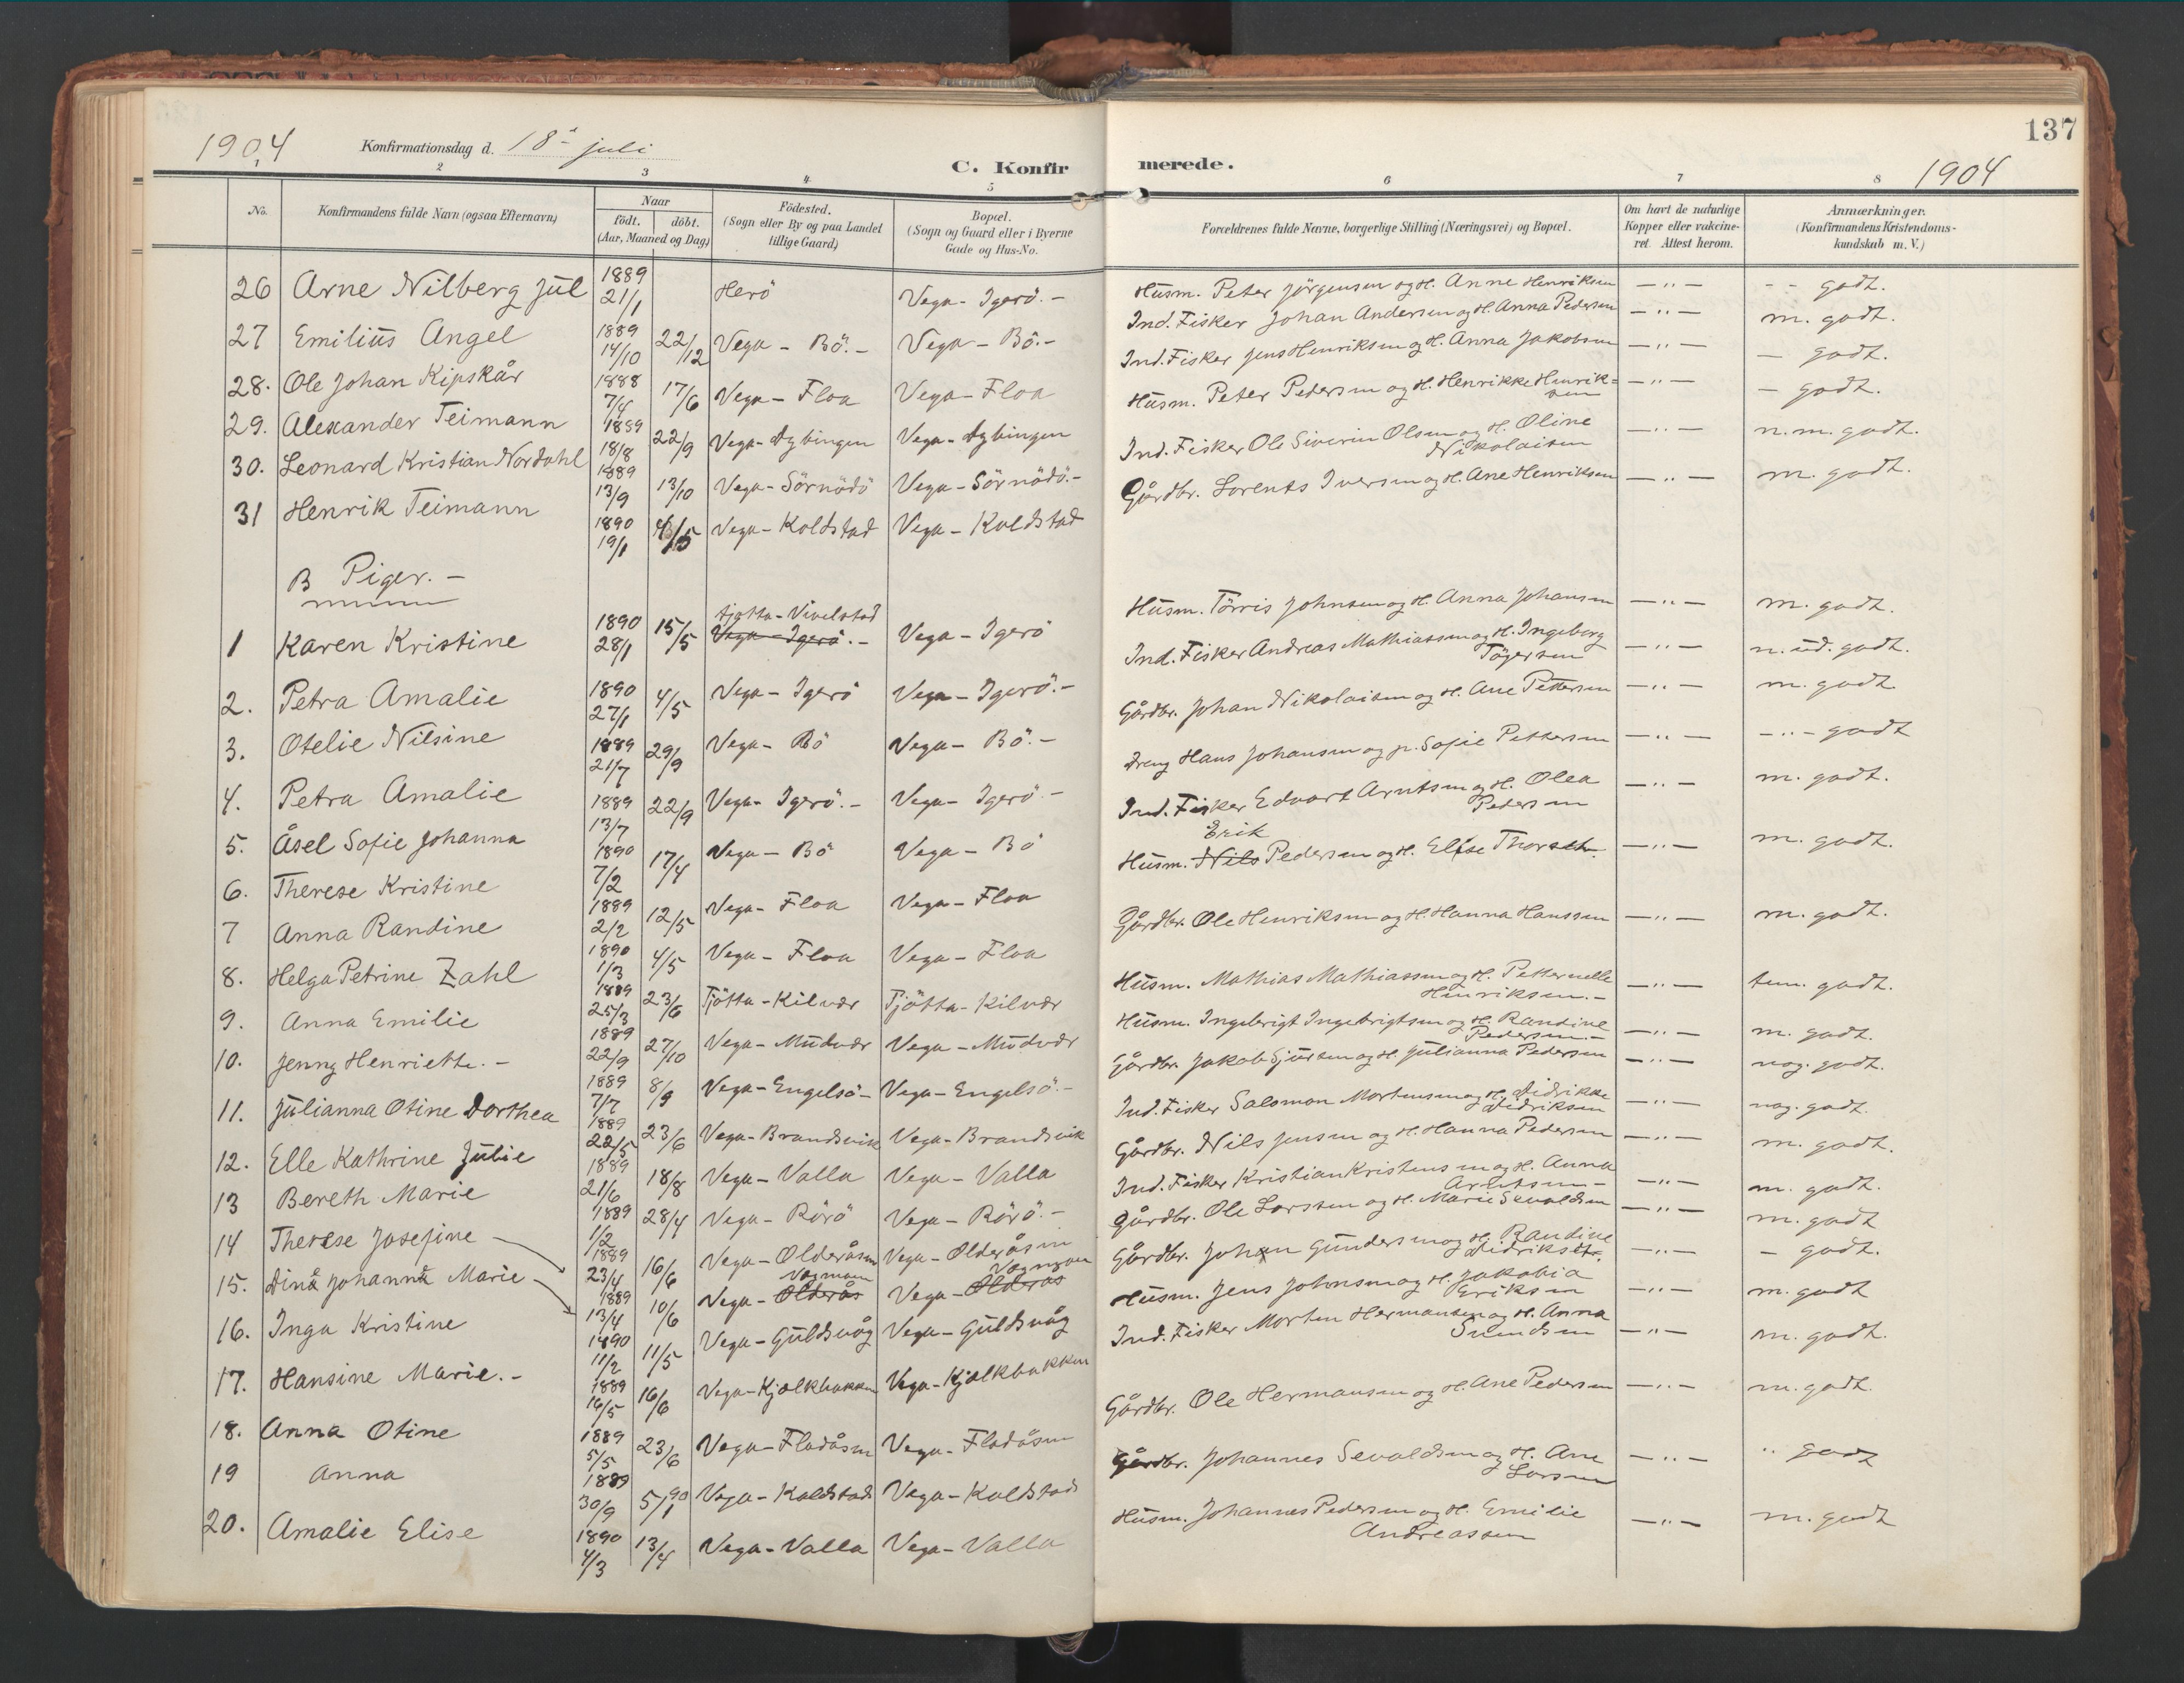 137
1904 Konfirmationsdag d. 18de juli
C. Konfirmerede. 1904
1 2 3 4 5 6 7 8
No. Konfirmandens fulde Navn (ogsaa Efternavn) Naar födt. döbt. (Aar, Maaned og Dag) Födested. (Sogn eller By og paa Landet tillige Gaard) Bopæl. (Sogn og Gaard eller i Byerne Gade og Hus-No. Forældrenes fulde Navne, borgerlige Stilling (Næringsvei) og Bopæl. Om havt de naturlige Kopper eller vakcineret. Attest herom. Anmærkninger. (Konfirmandens Kristendomskundskab m. V.)
26 Arne Nilberg Jul 1889 21/1 Herö Vega - Igerö. - Husm. Peter Jörgensen og H. Anne Henriksen — „ — - - godt.
27 Emilius Angel 1889 14/10 22/12 Vega - Bö. - Vega - Bö. - Ind. Fisker Johan Andersen og H. Anna Pedersen — „ — m. godt.
28. Ole Johan Kipskår 1888 7/4 17/6 Vega - Floa Vega - Floa Ind. Fisker Jens Henriksen og H. Anna Jakobsen — „ — - godt.
29. Alexander Teimann 1889 18/8 22/9 Vega - Dybingen Vega - Dybingen Husm. Peter Pedersen og H. Henrikke Henriksen — „ — - godt.
30. Leonard Kristian Nordahl 1889 13/9 13/10 Vega - Sörnödö Vega - Sörnödö. - Ind. Fisker Ole Siverin Olsen og H. Oline Nikolaisen — „ — n. m. godt.
31 Henrik Teimann 1890 19/1 4/5 Vega - Koldstad Vega - Koldstad Gårdbr. Lorents Iversen og H. Ane Henriksen — „ — m. godt.
B Piger. -
1 Karen Kristine 1890 28/1 15/5 Tjøtta - Vivelstad Vega - Igerö. - Vega - Igerö Husm. Törris Johnsen og H. Anna Johansen — „ — m. godt.
2. Petra Amalie 1890 27/1 4/5 Vega - Igerö Vega - Igerö. - Ind. Fisker Andreas Mathiassen og H. Ingeborg Tögersen — „ — n. ud. godt.
3. Otelie Nilsine 1889 21/7 29/9 Vega - Bö Vega - Bö. - Gårdbr. Johan Nikolaisen og H. Ane Pettersen — „ — m. godt.
4. Petra Amalie 1889 13/7 22/9 Vega - Igerö. - Vega - Igerö. - Dreng Hans Johansen og p. Sofie Pettersen — „ — - „ - godt
5. Åsel Sofie Johanna 1890 7/2 17/4 Vega - Bö Vega - Bö Ind. Fisker Edvart Arntsen og H. Olea Pedersen — „ — m. godt.
6. Therese Kristine 1889 2/2 12/5 Vega - Floa Vega - Floa Husm. Nils Erik Pedersen og H. Elise Thorsen — „ — m. godt.
7 Anna Randine 1890 1/3 4/5 Vega - Floa Vega - Floa Gårdbr. Ole Henriksen og H. Hanna Hanssen — „ — m. godt.
8. Helga Petrine Zahl 1889 25/3 23/6 Tjötta - Kilvær Tjötta - Kilvær Husm. Mathias Mathiassen og H. Petternelle Henriksen. - — „ — tem. godt.
9. Anna Emilie 1889 22/9 27/10 Vega - Mudvær Vega - Mudvær Husm. Ingebrigt Ingebrigtsen og H. Randine Pedersen. - — „ — m. godt.
10. Jenny Henriette. - 1889 7/7 8/9 Vega - Engelsö - Vega - Engelsö. - Gårdbr. Jakob Sjursen og H. Julianna Pedersen — „ — nog. godt.
11. Julianna Otine Dorthea 1889 22/5 23/6 Vega - Brandsvik Vega - Brandsvik Ind. Fisker Salomon Mortensen og H. Didrikke Didriksen — „ — nog. godt.
12. Elle Kathrine Julie 1889 21/6 18/8 Vega - Valla Vega - Valla Gårdbr. Nils Jensen og H. Hanna Pedersen — „ — m. godt.
13 Bereth Marie 1889 1/2 28/4 Vega - Rörö Vega - Rörö. - Ind. Fisker Kristian Kristensen og H. Anna Arntsen - — „ — m. godt.
14 Therese Josefine 1889 23/4 16/6 Vega - Olderåsen Vega - Olderåsen Gårdbr. Ole Larsen og H. Marie Sevaldsen — „ — m. godt
15. Dina Johanna Marie 1889 13/4 10/6 Vega - Olderås Vega - Olderås Gårdbr. Johan Gundersen og H. Randine Didriksdtr. — „ — - godt.
16. Inga Kristine 1890 11/2 11/5 Vega - Guldsvåg Vega - Guldsvåg Husm. Jens Johnsen og H. Jakobia Eriksen — „ — m. godt
17. Hansine Marie. - 1889 16/5 16/6 Vega - Kjælkbakken Vega - Kjælkbakken Ind. Fisker Morten Hermansen og H. Anna Svendsen — „ — m. godt.
18. Anna Otine 1889 5/5 23/6 Vega - Fladåsen Vega - Fladåsen Gårdbr. Ole Hermansen og H. Ane Pedersen — „ — m. godt.
19 Anna 1889 30/9 5/1 90 Vega - Koldstad Vega - Koldstad Gårdbr. Johannes Sevaldsen og H. Ane Larsen — „ — „ godt
20. Amalie Elise 1890 4/3 13/4 Vega - Valla Vega - Valla Husm. Johannes Pedersen og H. Emilie Andreassen — „ — m. godt